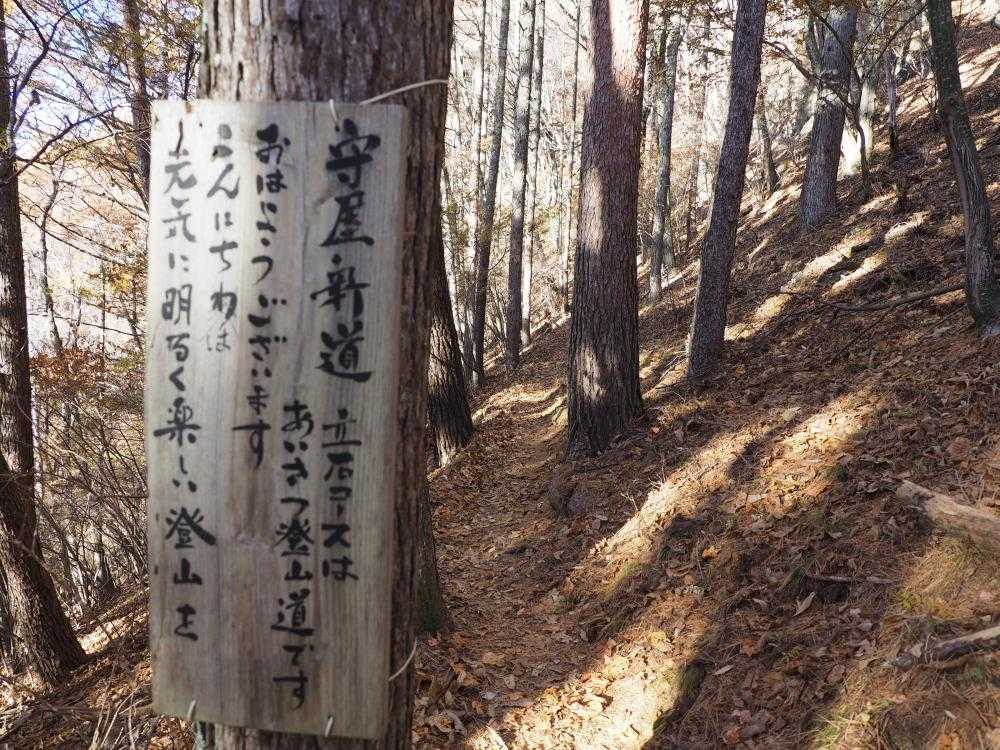 守屋新道 立石コースは
あいさつ登山道です
おはようございます
こんにちわは
元気に明るく楽しい登山を